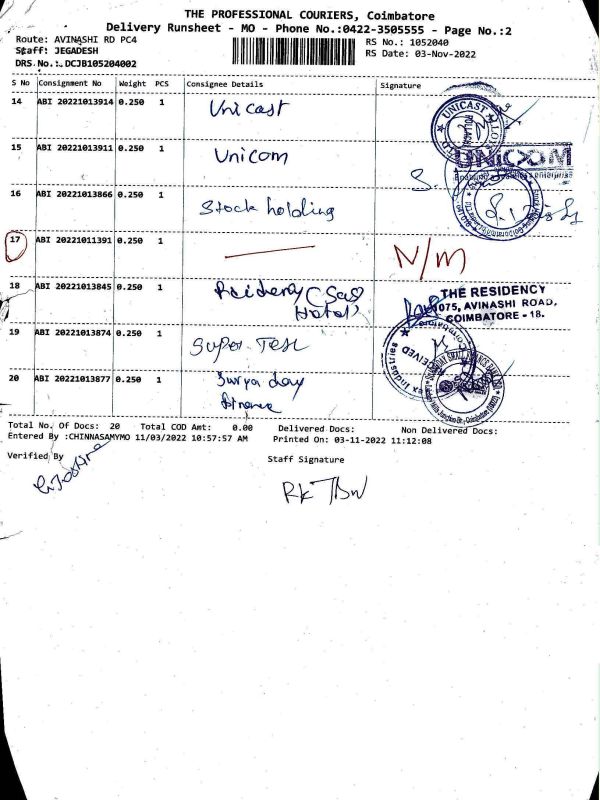 THE PROFESSIONAL COURIERS, Coimbatore
Delivery Runsheet - MO - Phone No.:0422-3505555 - Page No.:2
Route: AVINASHI RD PC4 RS No.: 1052040
Staff: JEGADESH RS Date: 03-Nov-2022
DRS.No.:.DCJB105204002
S No Consignment No Weight PCS Consignee Details Signature
14 ABI 20221013914 0.250 1 Unicast
UNICAST
15 ABI 20221013911 0.250 1 Unicom
UNICOM
16 ABI 20221013866 0.250 1 Stock holding
17 ABI 20221011391 0.250 1 N/M
18 ABI 20221013845 0.250 1
Hotel
THE RESIDENCY
1075, AVINASHI ROAD,
COIMBATORE - 18.
19 ABI 20221013874 0.250 1 Super Tex
RECEIVED
20 ABI 20221013877 0.250 1 Surya day
finance
Total No. Of Docs: 20 Total COD Amt: 0.00 Delivered Docs: Non Delivered Docs:
Entered By :CHINNASAMYMO 11/03/2022 10:57:57 AM Printed On: 03-11-2022 11:12:08
Verified By Staff Signature